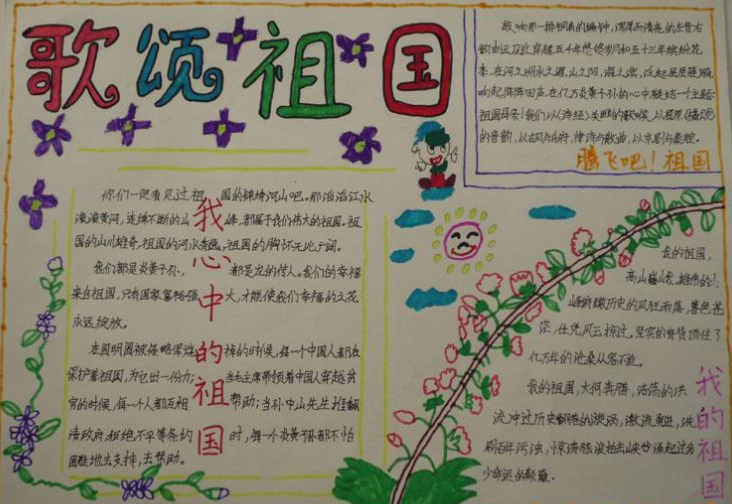 歌颂祖国
敲响那一排铜质的编钟，浑厚而清亮的
穿越五千年悠悠岁月和五十三年缤纷花
季，在河之洲水之湄，山之阳，海之滨，
响起阵阵回声，在亿万炎黄子孙的心中凝结一个主题：
祖国母亲！我们以《诗经》关雎的歌喉，以屈原《离骚》
的音韵，以古风与乐府，律诗与散曲，以京剧与秦腔。
腾飞吧！祖国
你们一定看见过祖国的锦绣河山吧。那滔滔江水
滚滚黄河，连绵不断的山峰，都属于我们伟大的祖国。祖
国的山川雄奇，祖国的河水秀逸，祖国的胸怀无比广阔。
我们都是炎黄子孙，都是龙的传人。我们的幸福
来自祖国，只有国家富裕强大，才能使我们幸福的之花
永远绽放。
在圆明园被侵略军烧掉的时候，每一个中国人都在
保护着祖国，为它出一份力；当毛主席带领着中国人穿越贫
穷的时候，每一个人都互相帮助；当孙中山先生推翻
清政府，拒绝不平等条约时，每一个炎黄子孙都不怕
困难地去支持，去帮助。
我心中的祖国
我的祖国，
高山巍峨，雄伟的
峰俯瞰历史的风狂雨落，暮色苍
茫，任凭风云掠过。坚实的脊背顶住了
亿万年的沧桑从容不迫。
我的祖国，大河奔腾，浩荡的洪
流冲过历史翻卷的漩涡，激流勇进，洪
刷百年污浊，惊涛骇浪拍击峡谷涌起过多
少命运的颠簸。
我的祖国